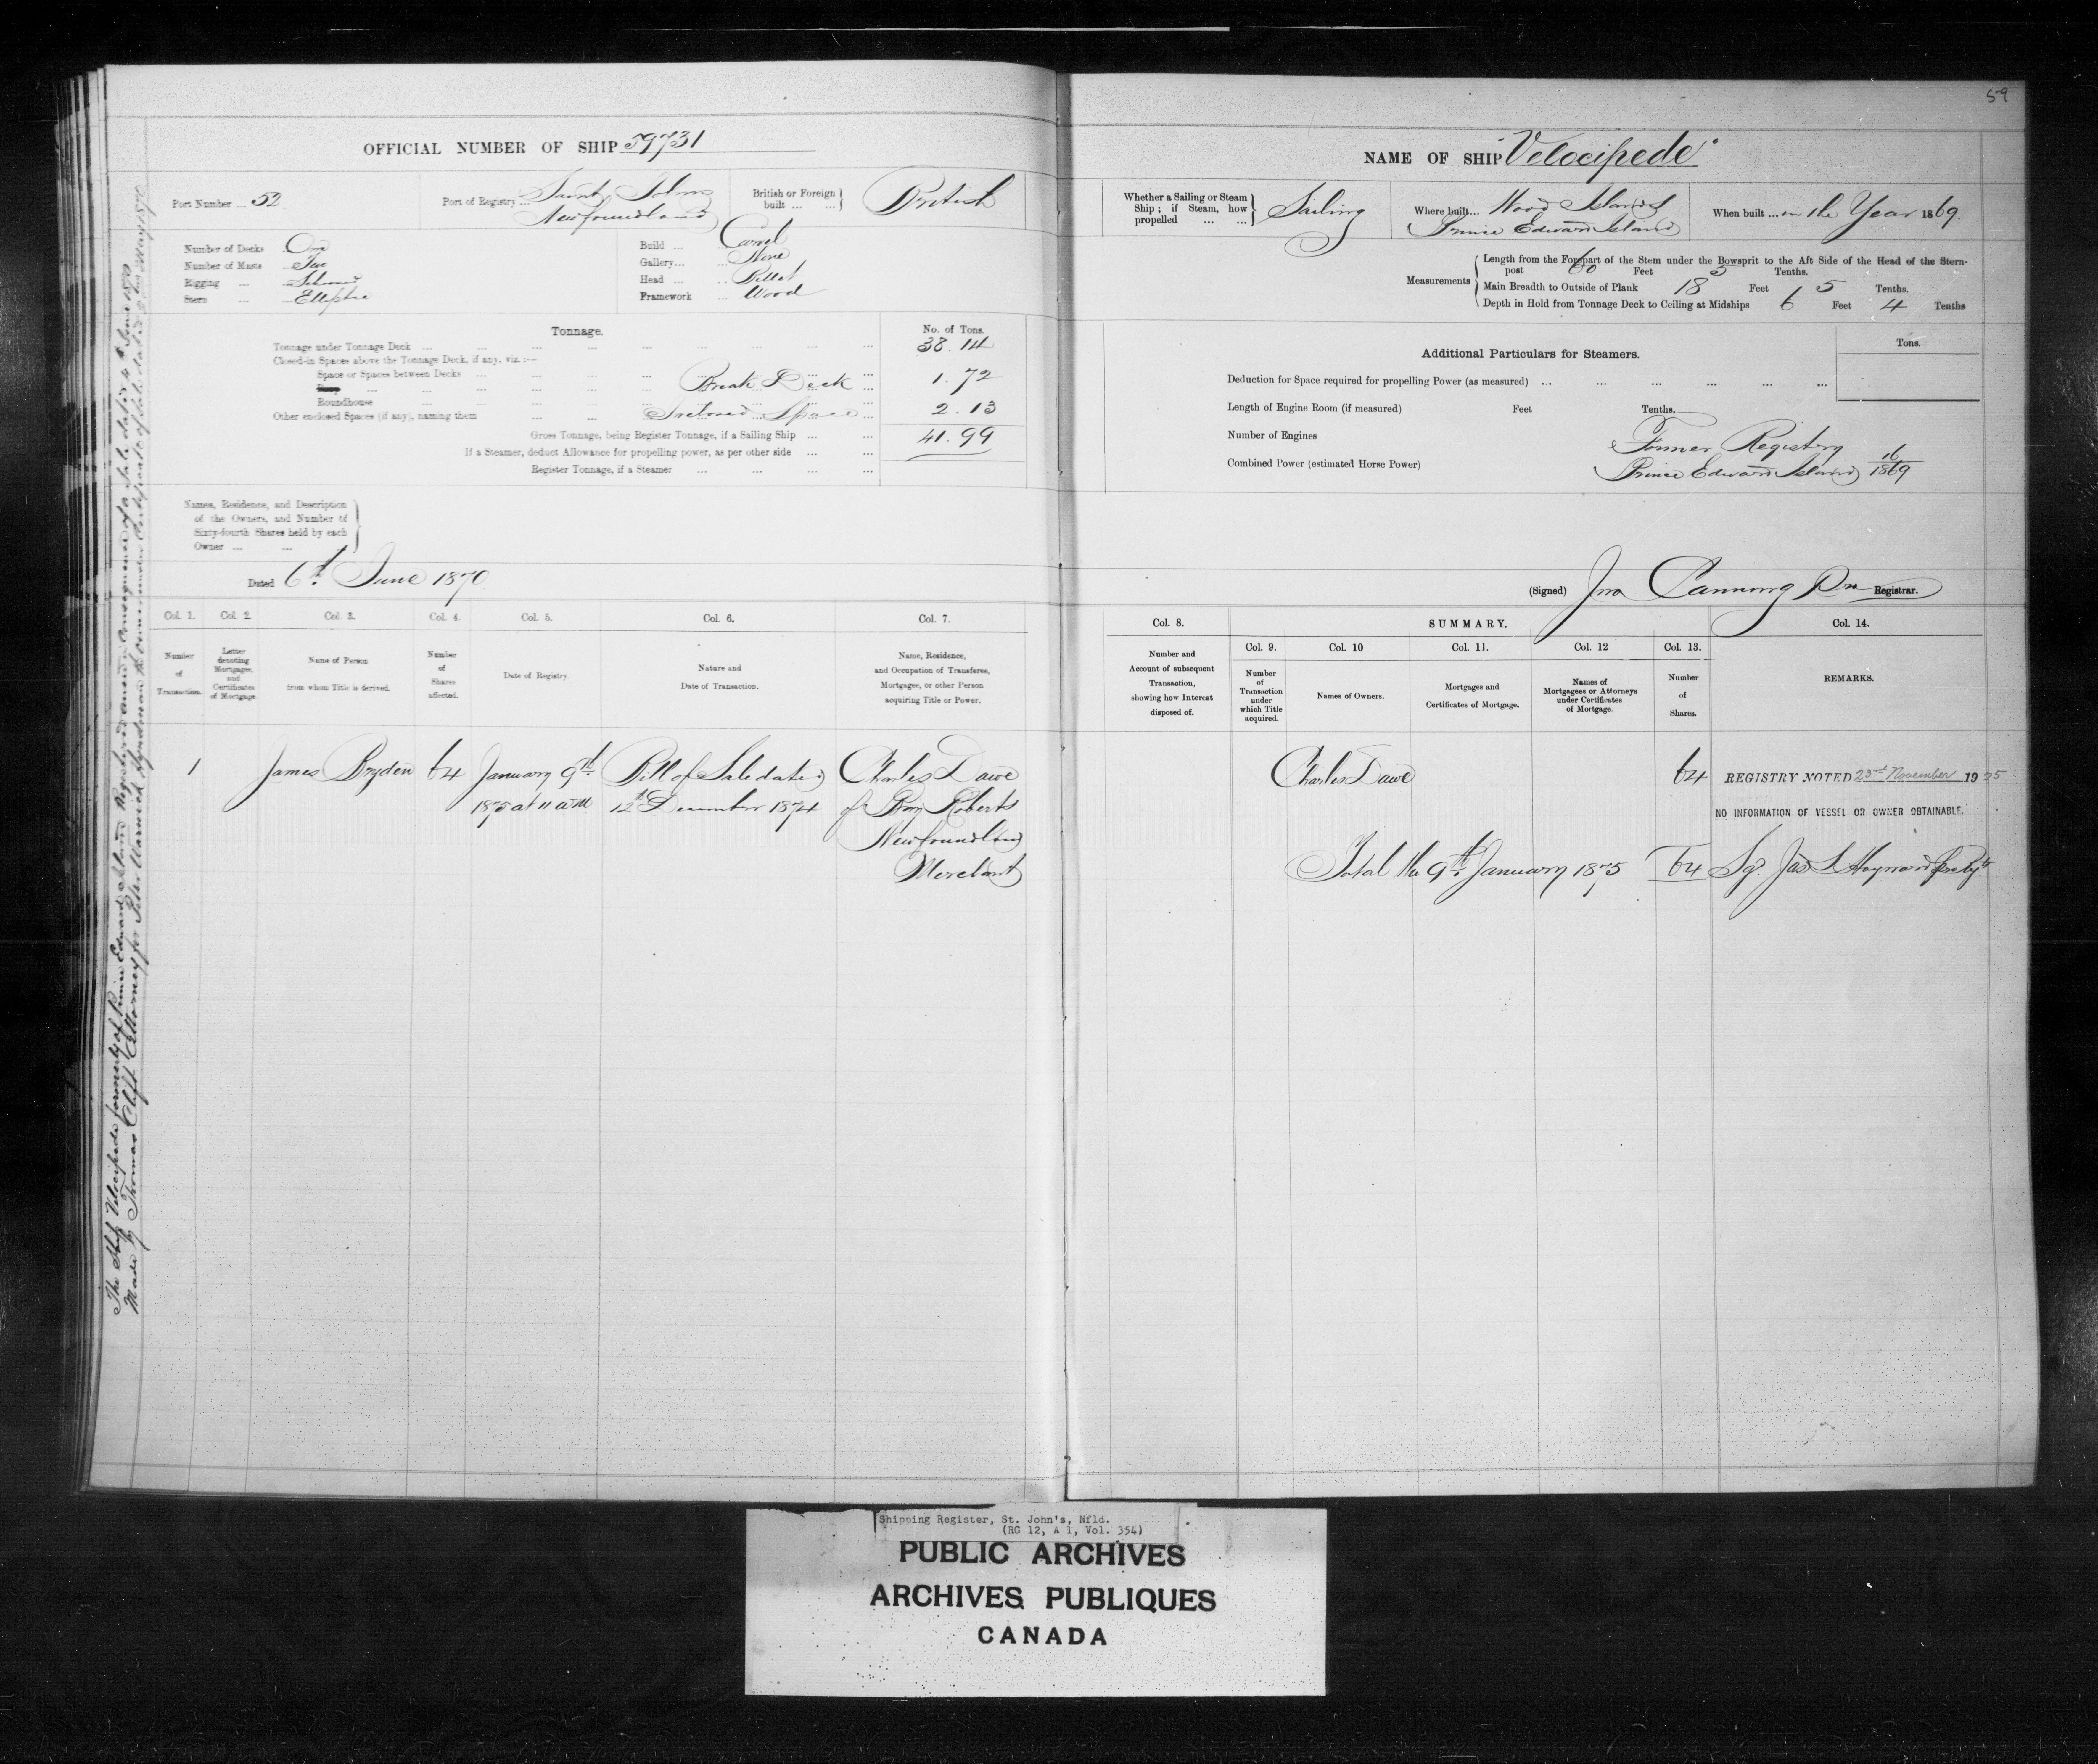 59
OFFICIAL NUMBER OF SHIP 59731
Port Number ... 52
Port of Registry ... Saint Johns
Newfoundland
British or Foreign built ... ... } British
Number of Decks One
Number of Masts Two
Rigging ... Schooner
Stern ... Elliptic
Build ... Carvel
Gallery ... None
Head ... Billet
Framework ... Wood
Tonnage.
No. of Tons.
Tonnage under Tonnage Deck ... 38.14
Closed-in Spaces above the Tonnage Deck, if any, viz. :—
Space or Spaces between Decks ... Break Deck ... 1.72
Poop ...
Roundhouse ...
Other enclosed Spaces (if any), naming them ... Inclosed Space ... 2.13
Gross Tonnage, being Register Tonnage, if a Sailing Ship ... 41.99
If a Steamer, deduct Allowance for propelling power, as per other side ...
Register Tonnage, if a Steamer ...
Names, Residence, and Description
of the Owners, and Number of
Sixty-fourth Shares held by each
Owner ... ...
Dated 6th June 1870
Col. 1. Col. 2. Col. 3. Col. 4. Col. 5. Col. 6. Col. 7.
Number of Transaction.
Letter denoting Mortgages, and Certificates of Mortgage.
Name of Person from whom Title is derived.
Number of Shares affected.
Date of Registry.
Nature and Date of Transaction.
Name, Residence, and Occupation of Transferee, Mortgagee, or other Person acquiring Title or Power.
1 James Bryden 64 January 9th Bill of Sale dated Charles Dawe
1875 at 11 am 12th December 1874 of Bay Roberts
Newfoundland
Merchant
The Ship Velocipede formerly of Prince Edward Island Registered anew in consequence of a Sale dated 4th June 1870
Made by Thomas Clift Attorney for Peter Warwick Hyndman the owner under Certificate of Sale dated May 1870
NAME OF SHIP "Velocipede"
Whether a Sailing or Steam
Ship ; if Steam, how
propelled ... ... } Sailing
Where built... Wood Islands
Prince Edward Island
When built ... in the Year 1869.
Measurements
Length from the Forepart of the Stem under the Bowsprit to the Aft Side of the Head of the Stern-
post 60 Feet Tenths.
Main Breadth to Outside of Plank 18 Feet 5 Tenths.
Depth in Hold from Tonnage Deck to Ceiling at Midships 6 Feet 4 Tenths
Additional Particulars for Steamers.
Tons.
Deduction for Space required for propelling Power (as measured) ...
Length of Engine Room (if measured) Feet Tenths.
Number of Engines
Combined Power (estimated Horse Power)
Former Registry
Prince Edward Island 16/1869
(Signed) Jno Canning Registrar.
Col. 8. SUMMARY. Col. 14.
Col. 9. Col. 10 Col. 11. Col. 12 Col. 13.
Number and Account of subsequent Transaction, showing how Interest disposed of.
Number of Transaction under which Title acquired.
Names of Owners.
Mortgages and Certificates of Mortgage.
Names of Mortgagees or Attorneys under Certificates of Mortgage.
Number of Shares.
REMARKS.
Charles Dawe 64 REGISTRY NOTED 23rd November 1925
NO INFORMATION OF VESSEL OR OWNER OBTAINABLE.
Total the 9th January 1875 64 Sg. Jas Hayward
Shipping Register, St. John's, Nfld.
(RG 12, A 1, Vol. 354)
PUBLIC ARCHIVES
ARCHIVES PUBLIQUES
CANADA